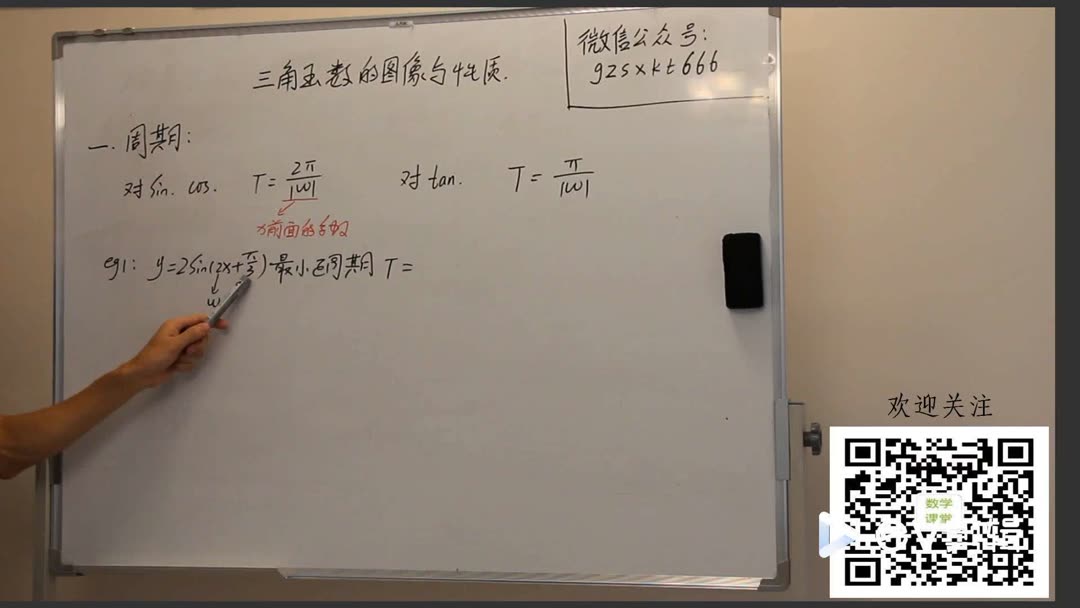 三角函数的图像与性质.
微信公众号:
gzsxkt666
一.周期:
对sin. cos. T=2π/|ω| 对tan. T=π/|ω|
x前面的系数
eg1: y=2sin(2x+π/3)最小正周期T=
ω
欢迎关注
数学
课堂